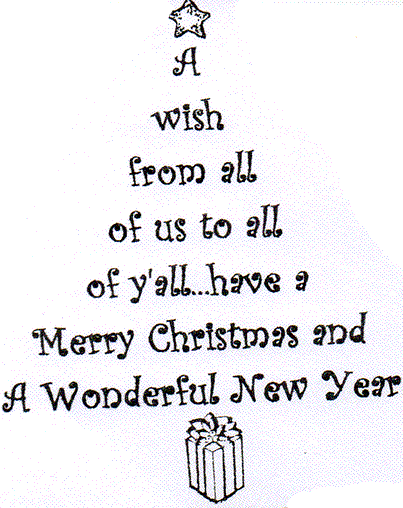 A
wish
from all
of us to all
of y'all...have a
Merry Christmas and
A Wonderful New Year